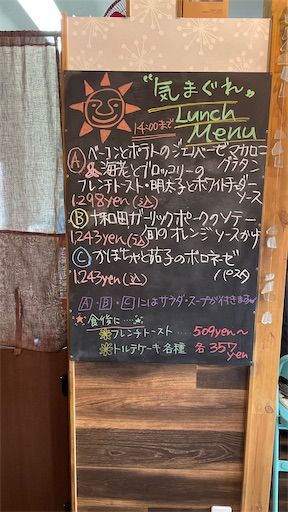 "気まぐれ"
Lunch
14:00まで Menu
Ⓐ ベーコンとポテトのジェノベーゼマカロニ
グラタン
& 海老とブロッコリーの
フレンチトースト・明太子とホワイトチェダー
ソース
1.298yen(込)
Ⓑ 十和田ガーリックポークソテー
1.243yen(込) 旬のオレンジソースがけ
Ⓒ かぼちゃと茄子のボロネーゼ
1.243yen(込) パスタ
A・B・Cにはサラダ・スープが付きます
食後に……
フレンチトースト…. 509yen〜
トルテケーキ各種 各357
yen